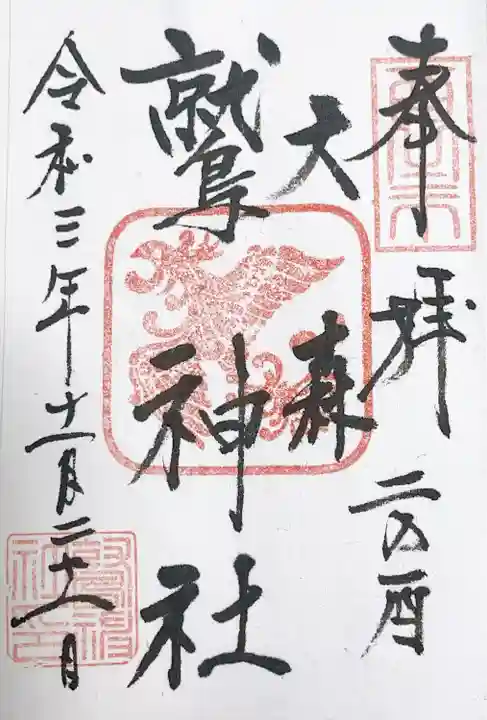 奉拝 二の酉
大森
鷲神社
令和三年十一月二十一日